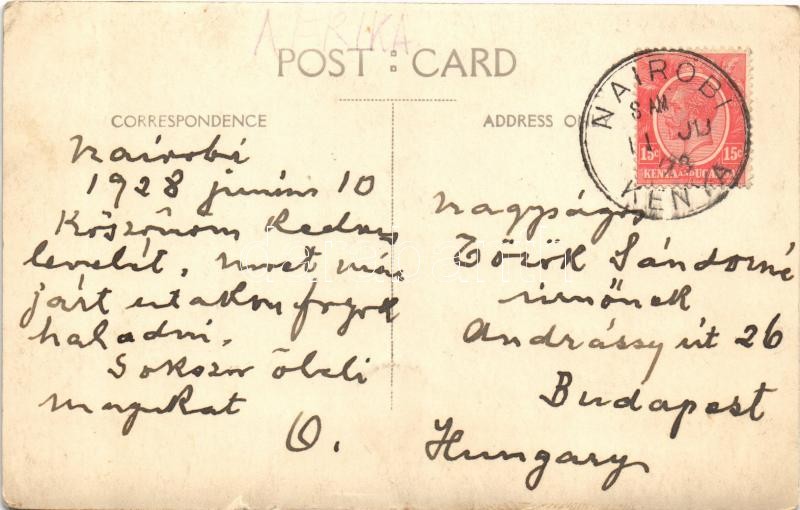 AFRIKA
POST CARD
CORRESPONDENCE
ADDRESS O
NAIROBI
8 AM
11 JU
28
KENYA
15c 15c
KENYA AND UGA
Nairobi
1928 június 10
Köszönöm kedves
levelét, most már
járt utakon fogok
haladni.
Sokszor öleli
magukat
O.
Nagyságos
Török Sándorné
úrnőnek
Andrássy út 26
Budapest
Hungary